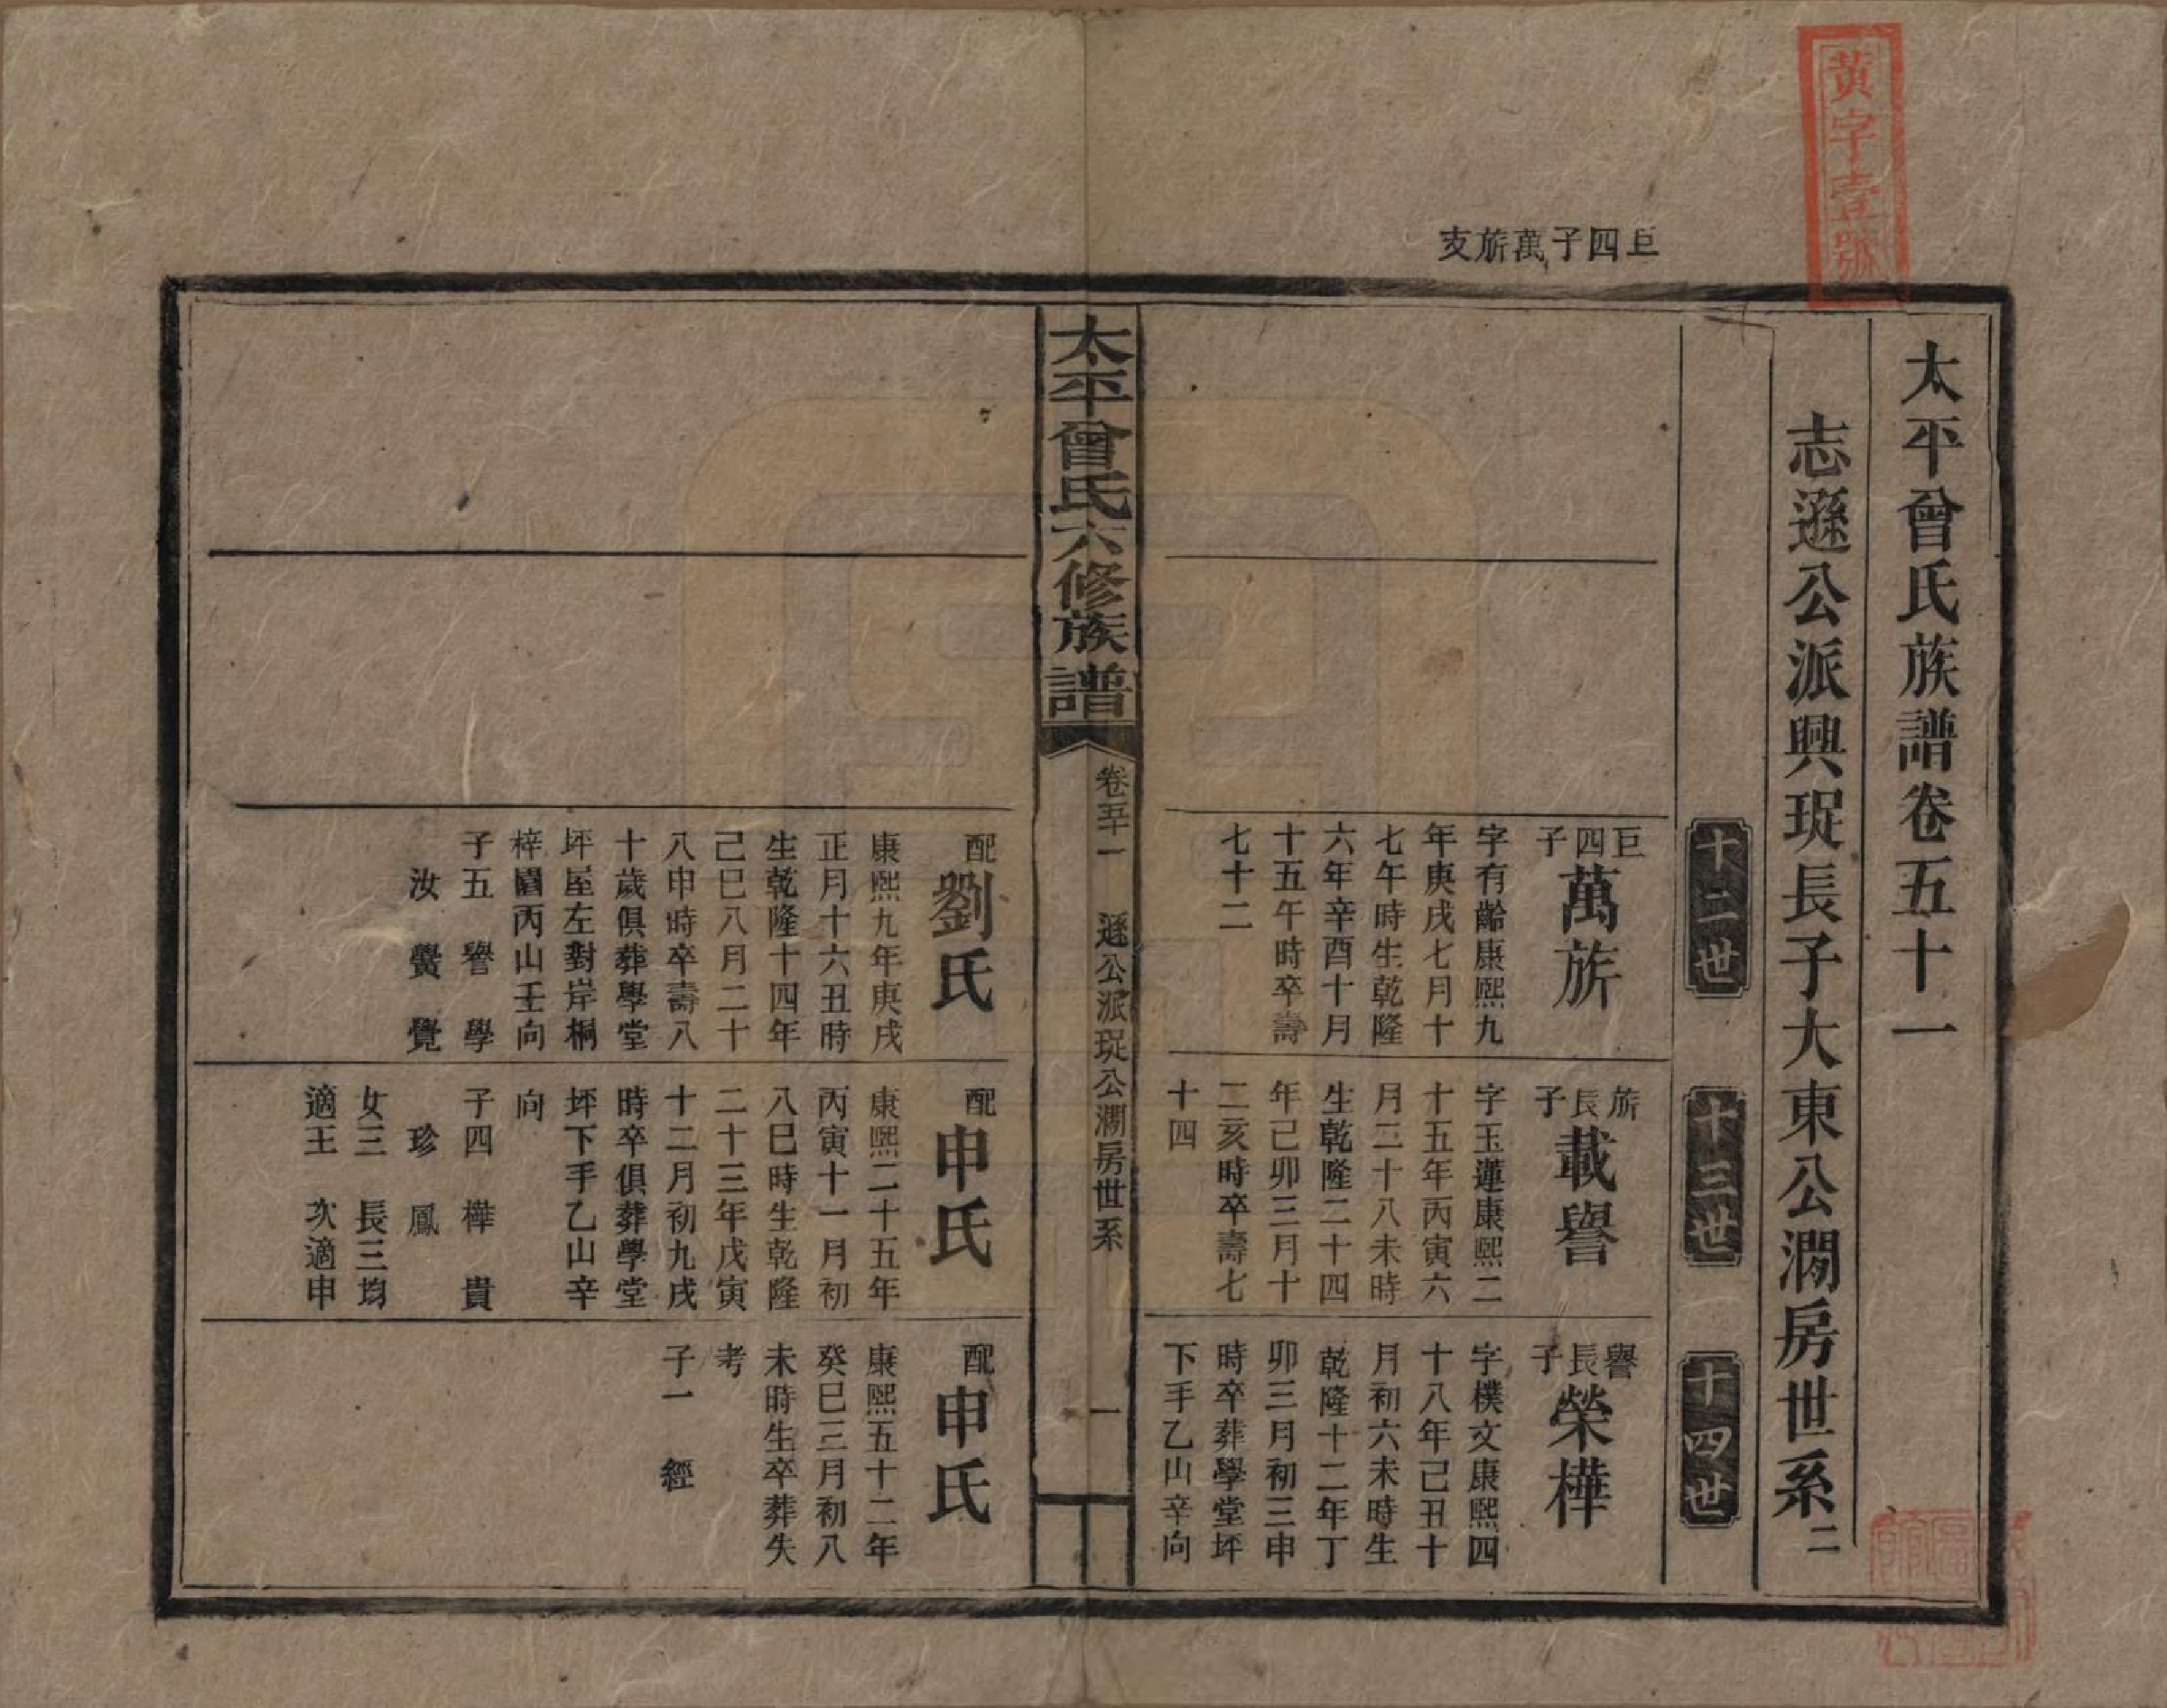 黃字壹號
巨四子萬旂支
太平曾氏族譜卷五十一
志遜公派興珽長子大東公澗房世系二
十二世
十三世
十四世
巨四子
萬旂
字有齡康熙九
年庚戌七月十
七午時生乾隆
六年辛酉十月
十五午時卒壽
七十二
旂長子
載譽
字玉蓮康熙二
十五年丙寅六
月二十八未時
生乾隆二十四
年己卯三月十
二亥時卒壽七
十四
譽長子
榮樺
字樸文康熙四
十八年己丑十
月初六未時生
乾隆十二年丁
卯三月初三申
時卒葬學堂坪
下手乙山辛向
太平曾氏六修族譜
卷五十一 遜公派珽公澗房世系
一
配
劉氏
康熙九年庚戌
正月十六丑時
生乾隆十四年
己巳八月二十
八申時卒壽八
十歲俱葬學堂
坪屋左對岸桐
梓園丙山壬向
子五 譽 學
汝 黌 覺
配
申氏
康熙二十五年
丙寅十一月初
八巳時生乾隆
二十三年戊寅
十二月初九戌
時卒俱葬學堂
坪下手乙山辛
向
子四 樺 貴
珍 鳳
女三 長三均
適王 次適申
配
申氏
康熙五十二年
癸巳三月初八
未時生卒葬失
考
子一 經